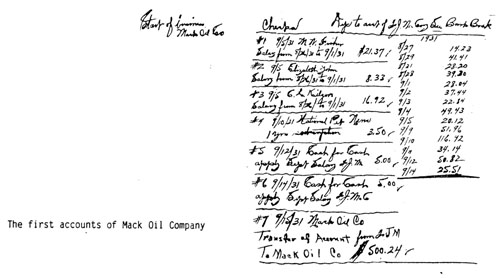 Start of business
Mack Oil Co
Checks
Deps to acct of
Bank Book
1931
#1 9/5/31 M. M.
Salary from 8/26/31 to 9/1/31 $21.37 ✓
#2 9/5 Elizabeth John
Salary from 8/26/31 to 9/1/31 8.33 ✓
#3 9/5
Salary from 8/26/ to 9/1/31 16.92 ✓
#4 9/10/31 National Pet News
1 year subscription 3.50 ✓
#5 9/12/31 Cash for Cash
apply Sept Salary J. M. 5.00 ✓
#6 9/14/31 Cash for Cash 5.00 ✓
apply Sept Salary
#7 9/15/31 Mack Oil Co
Transfer of Account from JM
To Mack Oil Co $500.24 ✓
8/27 14.23
8/29 41.41
8/31 28.20
8/28 39.30
9/1 28.04
9/2 37.44
9/3 22.84
9/4 49.43
9/5 20.12
9/9 51.96
9/10 116.42
9/11 34.14
9/12 50.82
9/14 25.51
The first accounts of Mack Oil Company